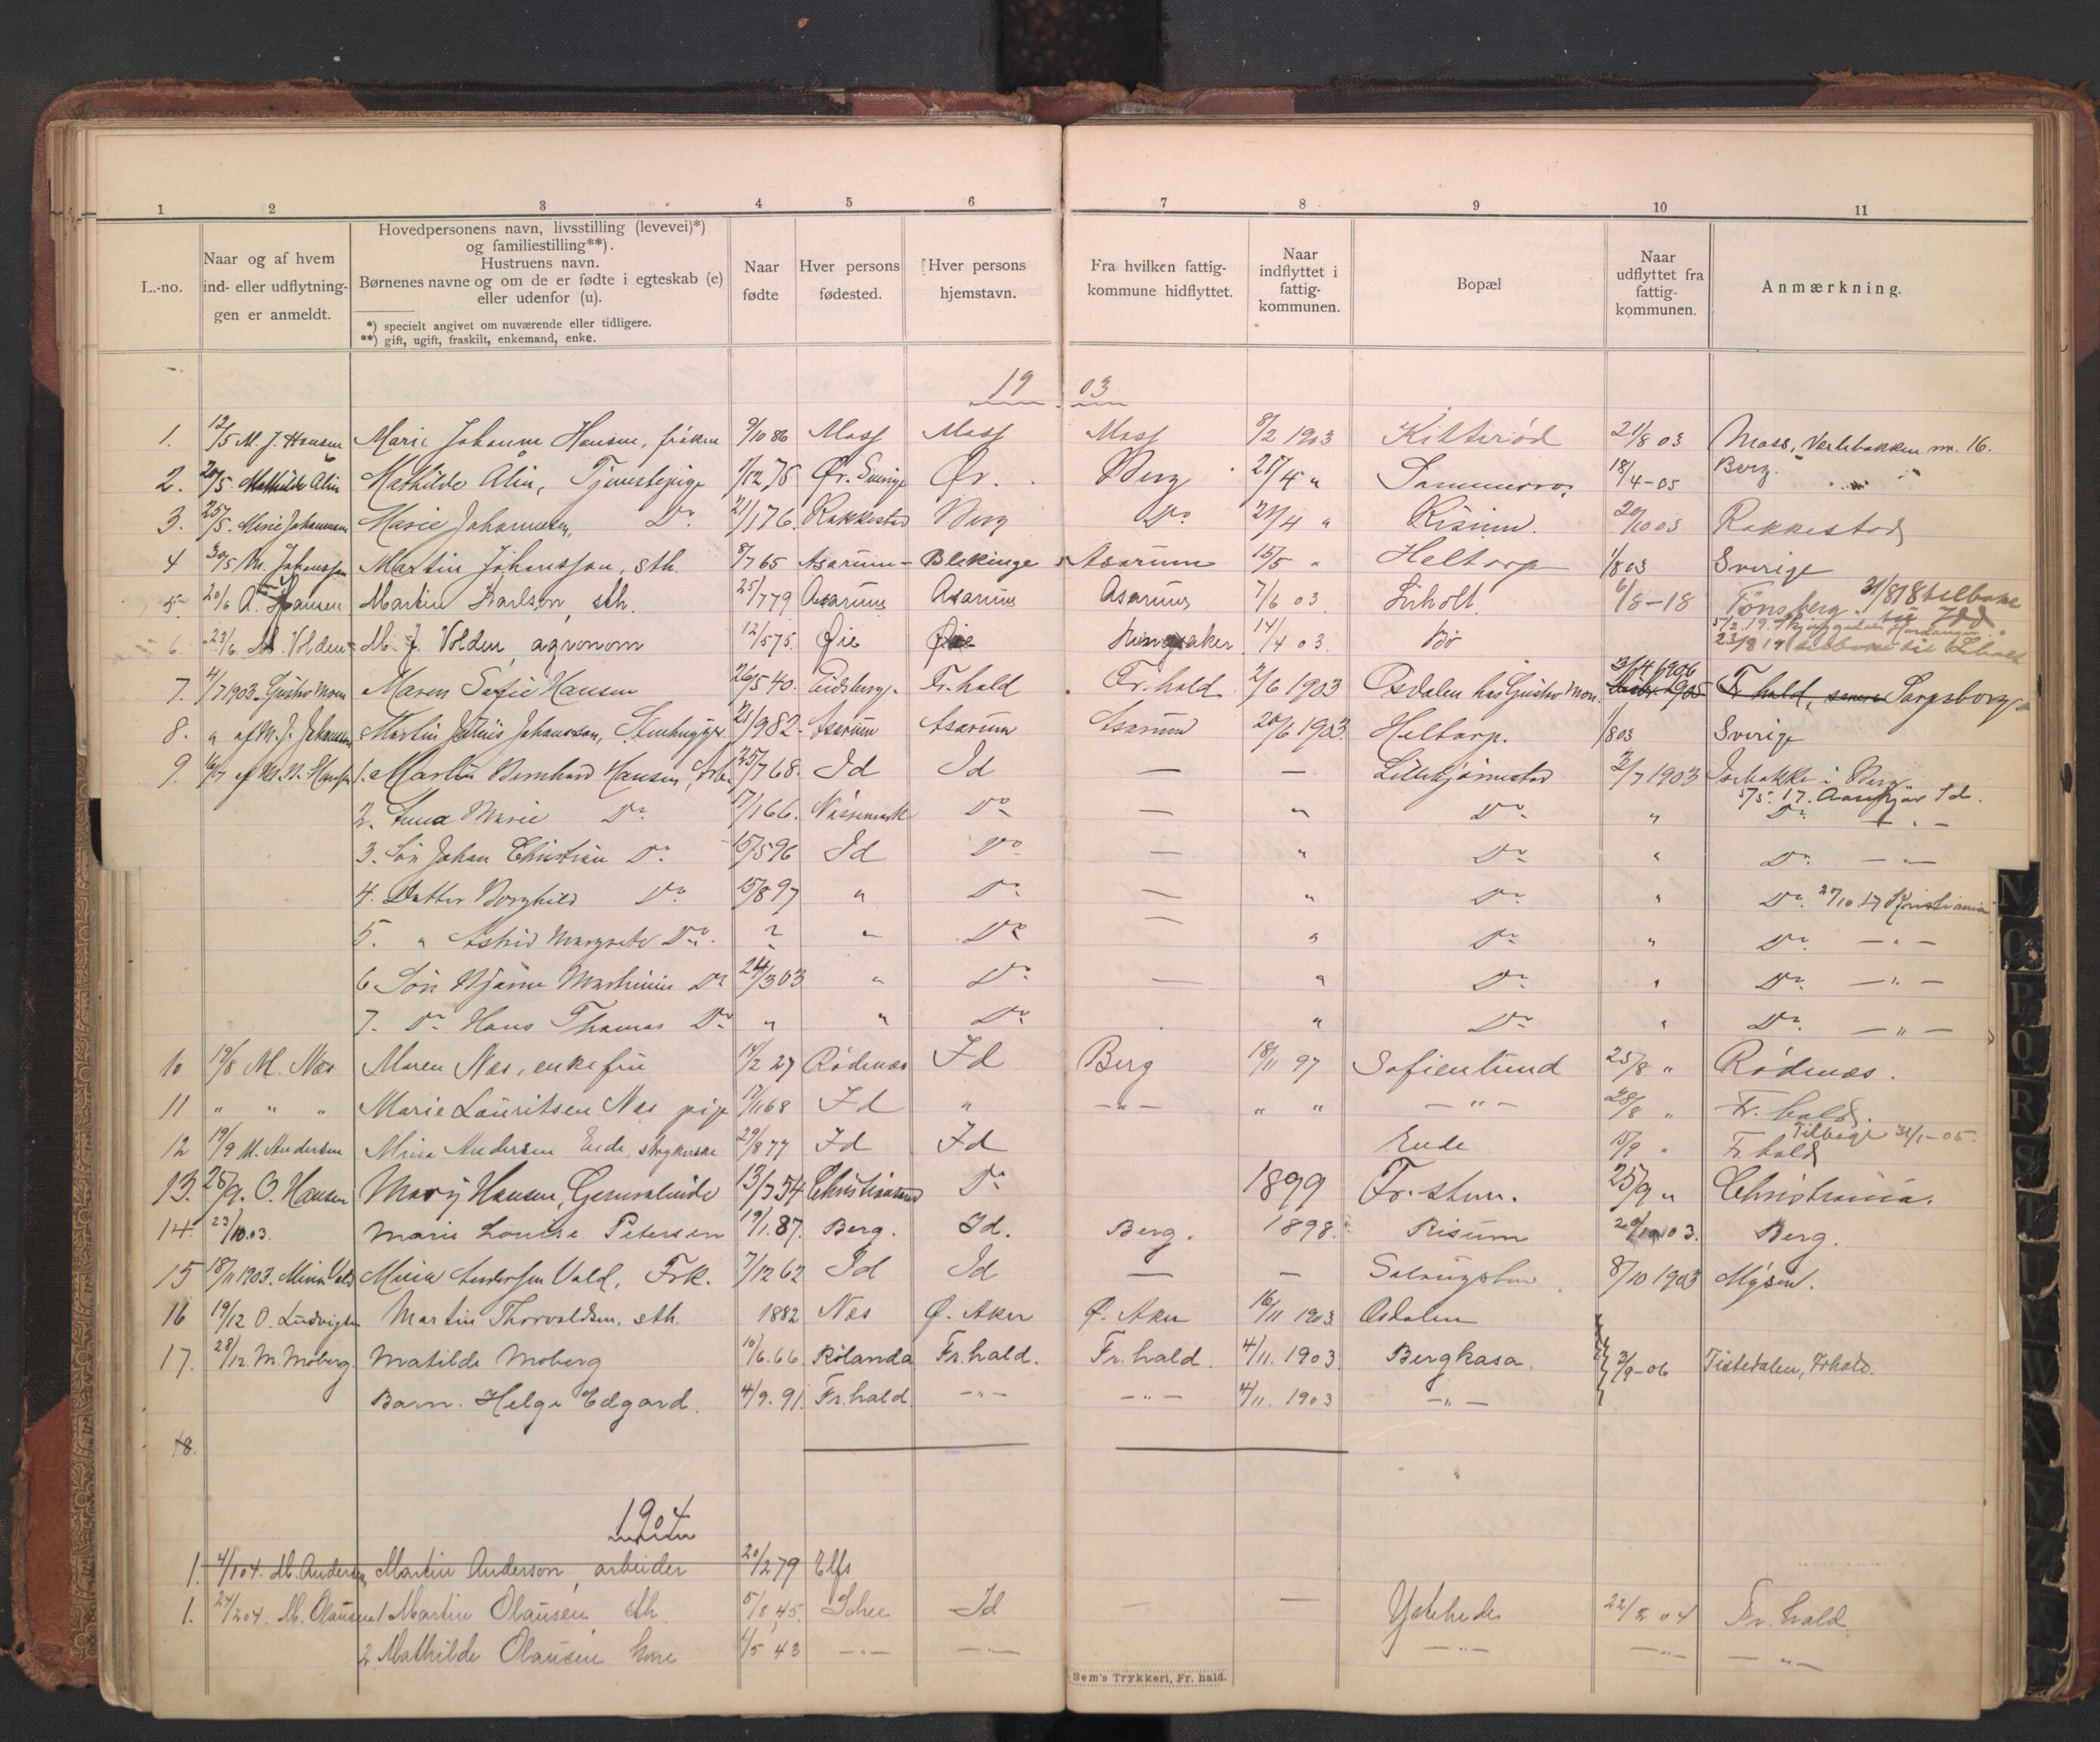 1 2 3 4 5 6 7 8 9 10 11
L.-no.
Naar og af hvem
ind- eller udflytnin-
gen er anmeldt.
Hovedpersonens navn, livsstilling (levevei)*)
og familiestilling**).
Hustruens navn.
Børnenes navne og om de er fødte i egteskab (e)
eller udenfor (u).
*) specielt angivet om nuværende eller tidligere.
**) gift, ugift, fraskilt, enkemand, enke.
Naar
fødte
Hver persons
fødested.
Hver persons
hjemstavn.
Fra hvilken fattig-
kommune hidflyttet.
Naar
indflyttet i
fattig-
kommunen.
Bopæl
Naar
udflyttet fra
fattig-
kommunen.
Anmærkning.
19 03
1. 12/5 M. J. Hansen Marie Johanne Hansen, frøken 9/10 86 Moss Moss Moss 8/2 1903 Kilterød 21/8 03 Moss, Værlebakken nr. 16.
2. 20/5 Mathilde Alin Mathilde Alin, Tjenestepige 1/12 78 Ør. Sverige Ør. Berg 25/4 " 18/4-05 Berg.
3. 25/5. Marie Johannesen Marie Johannesen, Do 21/1 76. Rakkestad Berg Do 21/4 " Risum. 20/10 03 Rakkestad
4 30/5 M. Johansson Martin Johansson, sth. 8/7 65 Asarum - Blekinge Asarum 15/5 " Heltorp 1/8 03 Sverige
5 20/6 A. Hansen Martin Karlsen, sth. 25/7 79 Asarum Asarum Asarum 7/6 03 Liholt 6/8-18 Tønsberg. 31/8 18 tilbake til Idd
6. 23/6. M. Volden M. J. Volden, agronom 12/5 75. Øie Øie Ringsaker 14/4 03. Bø 23/8 19 tilbake til
7. 4/7 1903. Gustav Moen Maren Sofie Hansen 26/5 40. Eidsberg. Fr.hald Fr.hald 2/6 1903 Asdalen hos Gustav Moen. 3/4 1906 1905 Fr hald, senere Sarpsborg
8. " af M. J. Johansson Martin Julius Johansson, Stenhugger 21/9 82. Asarum Asarum Asarum 20/6 1903. Heltorp. 1/8 03 Sverige
9. 6/7 af M. B. Hansen 1. Martin Bernhard Hansen, Arb. 25/7 68. Id Id — — Lillehjørnestad 3/7 1903 Isebakke i Berg
5/5. 17. Aasekjær Id.
2. Anna Marie Do 17/1 66. Näsinmark Do — " Do " Do — " —
3. Søn Johan Christian Do. 15/5 96 Id Do — " Do " Do. — " —
4. Datter Borghild Do 15/8 97 " Do — " Do " Do. 27/10 17 Kristiania
5. " Astrid Margrete Do. ? " Do — " Do " Do. — " —
6. Søn Bjarne Martinius Do 24/3 03 " Do — " Do " Do. — " —
7. Do Hans Thomas Do " " Do " Do " Do. — " —
10 19/8 M. Næs Maren Næs, enkefru 14/2 27 Rødenæs Id Berg 18/11 97 Sofienlund 25/8 " Rødenæs.
11 " " " Marie Lauritsen Næs pige 17/11 68 Id " — " — " " — " — 28/8 " Fr. hald.
12 19/9 M. Andersen Mina Andersen Ende, strykerske 29/8 77 Id Id Ende 15/9 " Fr. hald Tilbage 31/1-05.
13. 26/9. O. Hansen Mary Hansen, 13/7 54 Christiansund Do 1899 Fr.sten. 25/9 " Christiania.
14. 23/10.03. Marie Louise Petersen 19/1.87. Berg. Id. Berg. 1898. Risum 20/10 03. Berg.
15 18/11 1903. Mina Vold Mina Andersen Vold, Frk. 7/12 62 Id Id — — 8/10 1903 Mysen.
16 19/12 O. Ludvigsen Martin Thorvaldsen, sth. 1882 Næs Ø. Aker Ø. Aker 16/11 1903. Asdalen
17. 28/12. M. Moberg. Matilde Moberg 10/6.66. Rölanda Fr.hald. Fr.hald. 4/11. 1903 Bergkasa. 3/9-06 Tistedalen, Frhald.
Barn. Helge Edgard. 4/9. 91. Fr.hald — " — — " — 4/11. 1903 — " —
18.
1904
1. 4/1 04. M. Andersen Martin Anderson, arbeider 20/2 79 Elfs
1. 24/2 04. M. Olausen 1 Martin Olausen, sth. 5/8 45. Id — — Ystehede 22/2 04 Fr. hald.
2 Mathilde Olausen kone 1/5 43 — " — — " — — " — — " — — " —
Sem's Trykkeri, Fr. hald.
N
O
P
Q
R
S
T
U